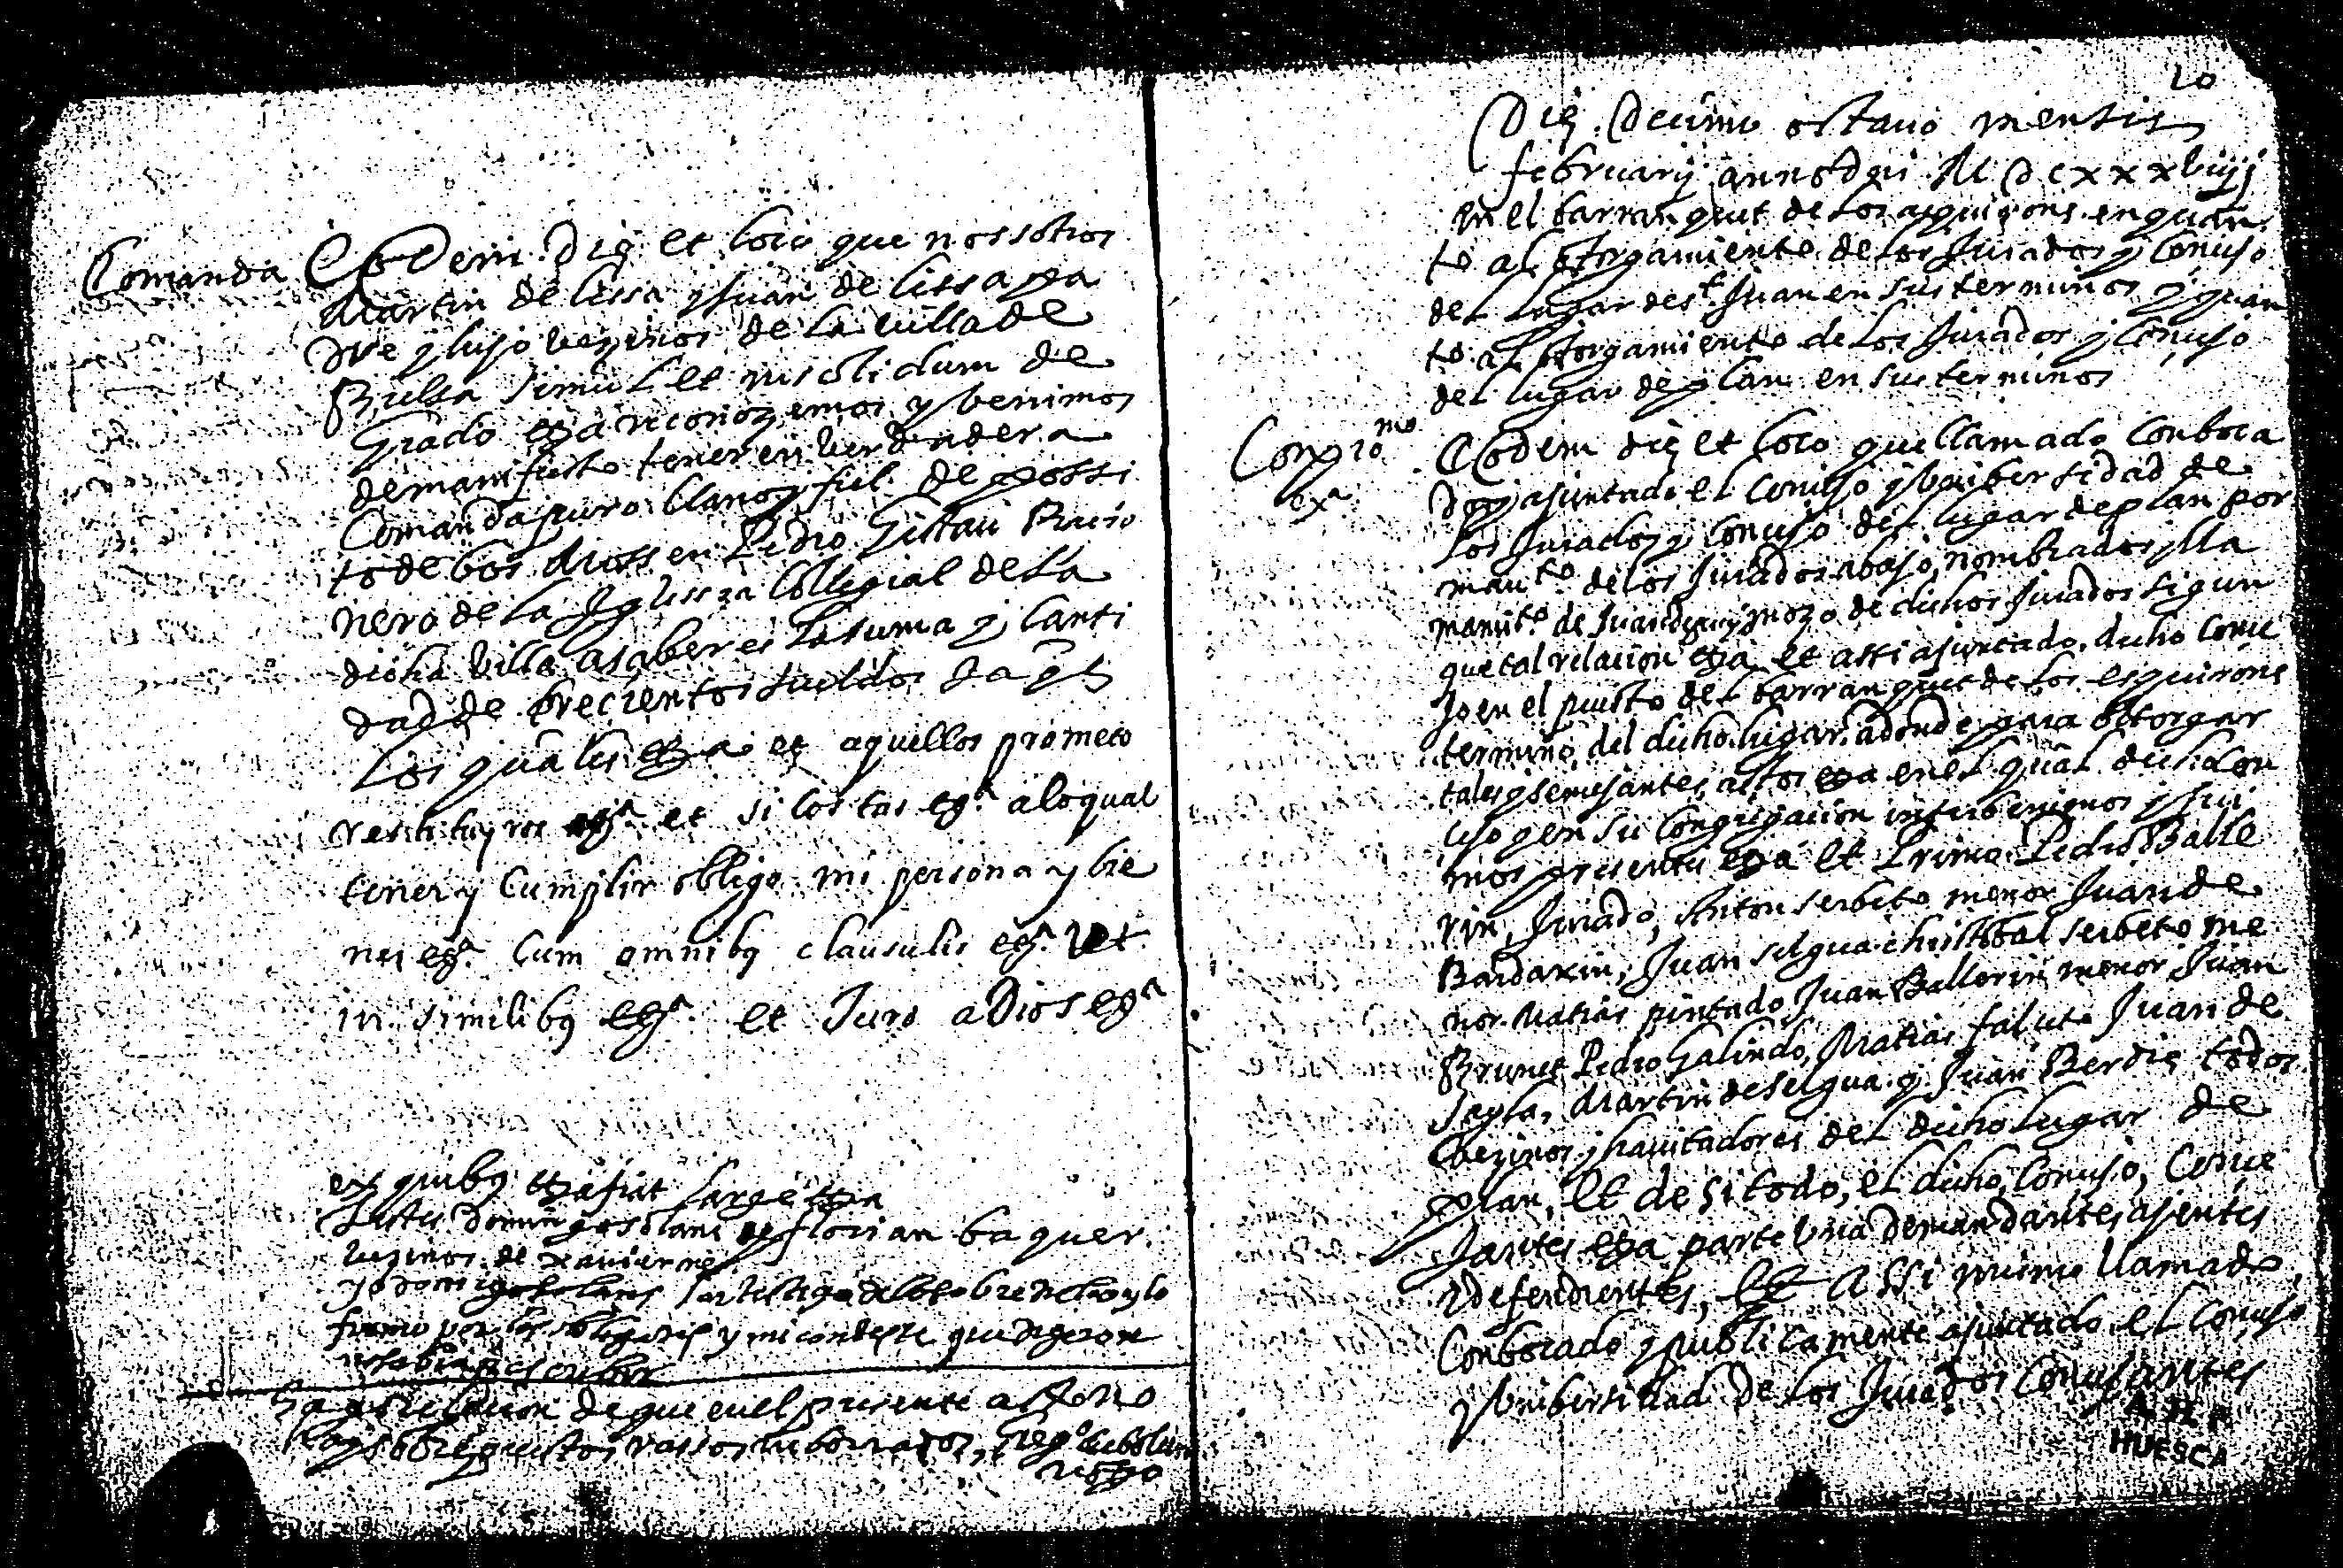 Comanda
Eodem die et loco que nossotros
Martin de lissa y Juan de lissa pa
dre y hijo vezinos de la villa de
Bielsa simul et insolidum de
Grado etza reconozemos y venimos
de manifiesto tener en verdadera
Comanda puro llano y fiel de possi
to de bos Mossen Pedro Gistau Racio
nero de la Iglessia Collegial de la
dicha villa a saber es la suma y canti
dad de trecientos sueldos jaqs
Los quales etza et aquellos prometo
restituyros etza et si costas etza a lo qual
tener y cumplir obligo mi persona y bie
nes etza Cum omnibq clausulis etza vt
in similibq etza et Juro a Dios etza
ex quibq etza fiat large etza
testes Domingo solans y florian baquer
vezinos de
yo domigo solans soi testigo de lo sobre dicho y lo
firmo por los obligados y mi condeste que digeron
no sabian escriber
en el presente acto no
hay sobrepuestos rassos ni borrados,
20
Die Decimo octavo mensis
februarij anno dni M DCxxxviiij
en el barranquet de los esquirons en quan
to al otorgamiento de los Jurados y Consejo
del lugar de st Juan en sus terminos y quan
to al otorgamiento de los Jurados y Consejo
del lugar de plan en sus terminos
Compromo
etza
Eodem die et loco que llamado conboca
do y ajuntado el Consejo y vnibersidad de
los Jurados y Consejo del lugar de plan por
manto de los Jurados abajo nombrados y lla
mamito de Juan mozo de dichos Jurados sigun
que tal relacion etza et assi ajuntado dicho Conce
jo en el puesto del barranquet de los esquirons
termino del dicho lugar adonde para otorgar
tales y semejantes actos etza en el qual dicho Con
cejo y en su congregacion interbenimos y fui
mos presentes etza et Primo Pedro Balle
rin, Jurado, Anton serbeto menor Juan de
Bardaxin, Juan selgua christobal serbeto me
nor Matias pintado Juan Ballerin menor Juan
Brunet Pedro Galindo, Matias falceto Juan de
sayla, Martin de selgua y Juan Berdie todos
vezinos y hauitadores del dicho lugar de
plan, Et de si todo, el dicho Consejo, Conce
jantes etza parte vna demandantes ajentes
y defendientes, Et assi mismo llamado
Conbocado y publicamente ajuntado el Consejo
y vnibersidad de los Jurados Consejantes
A.H.P.
HUESCA